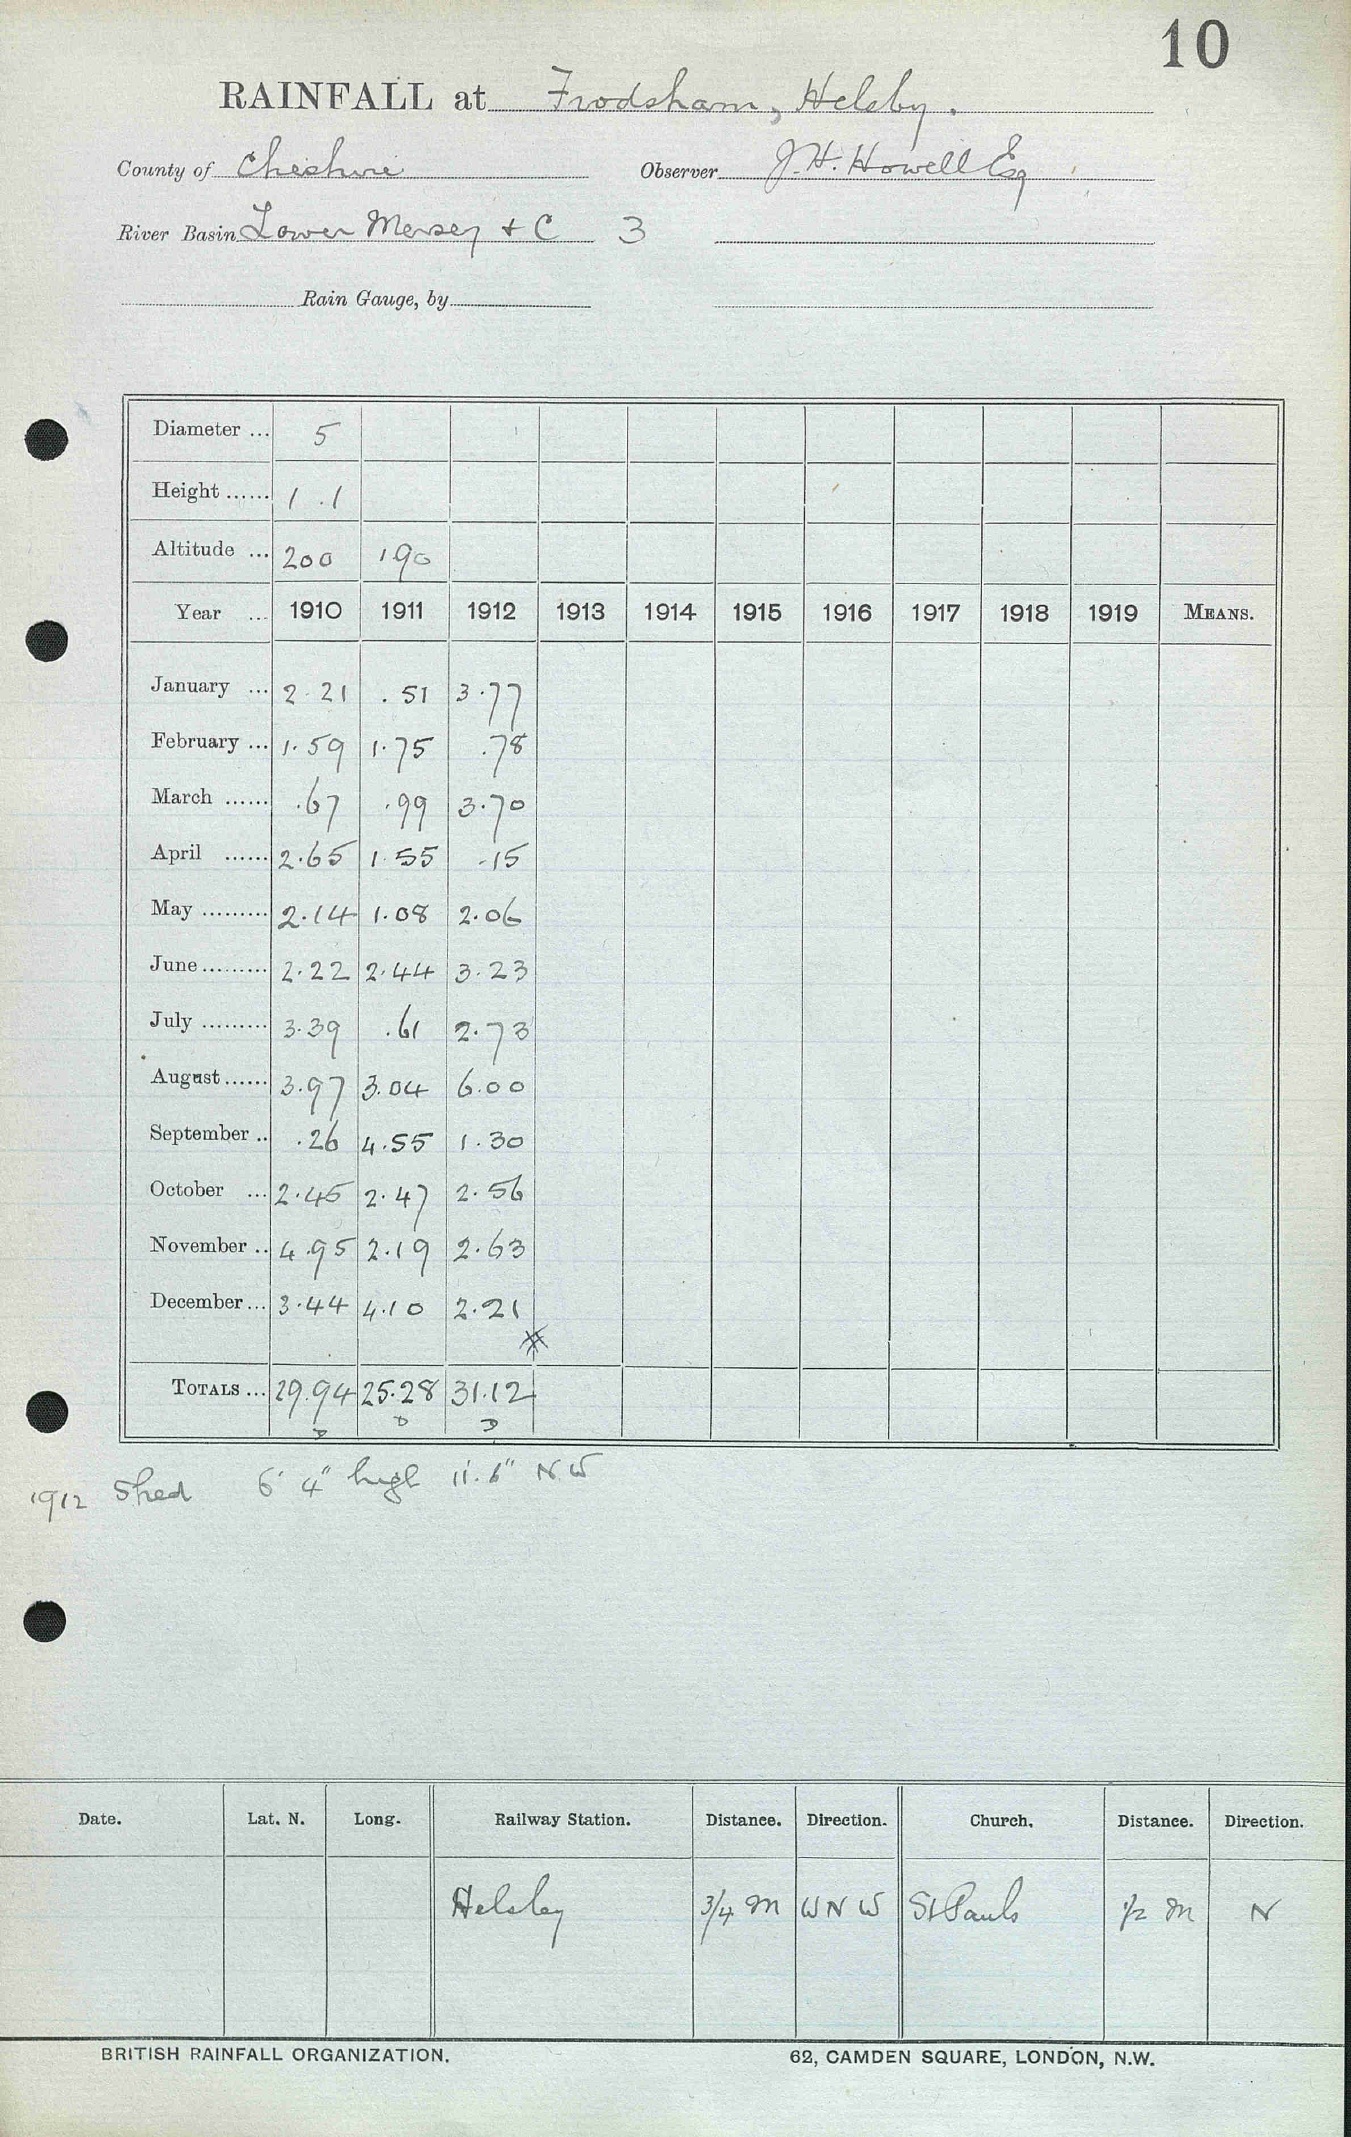 10
RAINFALL at Frodsham, Helsby.
County of Cheshire Observer J. H. Howell Esq
River Basin Lower Mersey + C 3
Rain Gauge, by
Diameter ... 5
Height ...... 1 .1
Altitude ... 200 190
Year ... 1910 1911 1912 1913 1914 1915 1916 1917 1918 1919 MEANS.
January ... 2.21 .51 3.77
February ... 1.59 1.75 .78
March ...... .67 .99 3.70
April ...... 2.65 1.55 .15
May ......... 2.14 1.08 2.06
June ......... 2.22 2.44 3.23
July ......... 3.39 .61 2.73
August ...... 3.97 3.04 6.00
September .. .26 4.55 1.30
October ... 2.45 2.47 2.56
November .. 4.95 2.19 2.63
December ... 3.44 4.10 2.21
TOTALS ... 29.94 25.28 31.12
D D D
1912 Shed 6' 4" high 11'. 6" N.W
Date. Lat. N. Long. Railway Station. Distance. Direction. Church. Distance. Direction.
Helsby 3/4 m W N W St Pauls 1/2 m N
BRITISH RAINFALL ORGANIZATION. 62, CAMDEN SQUARE, LONDON, N.W.